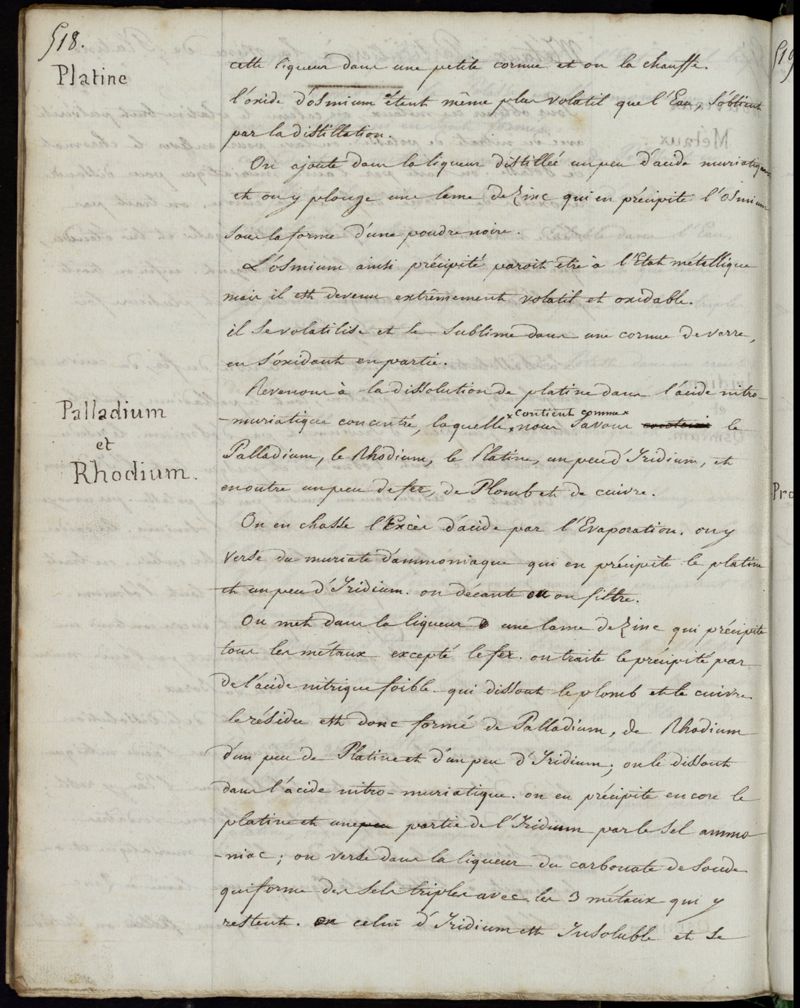 518.
Platine
cette liqueur dans une petite cornue et on la chauffe.
l'oxide d'osmium étant même plus volatil que l'Eau, s'obtient
par la distillation.
On ajoute dans la liqueur distillée un peu d'acide muriatique
et on y plonge une lame de Zinc qui en précipite l'osmium
sous la forme d'une poudre noire.
L'osmium ainsi précipité paroit être à l'Etat métallique
mais il est devenu extrêmement volatil et oxidable.
il se volatilise et se sublime dans une cornue de verre,
en s'oxidant en partie.
Palladium
et
Rhodium.
Revenons à la dissolution de platine dans l'acide nitro-
-muriatique concentré, laquelle contient comme nous savons le
Palladium, le Rhodium, le Platine, un peu d'Iridium, et
en outre un peu de fer, de Plomb et de cuivre.
On en chasse l'Excès d'acide par l'Evaporation. on y
verse du muriate d'ammoniaque qui en précipite le platine
et un peu d'Iridium. on décante ou on filtre.
On met dans la liqueur une lame de Zinc qui précipite
tous les métaux excepté le fer. on traite le précipité par
de l'acide nitrique foible qui dissout le plomb et le cuivre
le résidu est donc formé de Palladium, de Rhodium
d'un peu de Platine et d'un peu d'Iridium; on le dissout
dans l'acide nitro-muriatique. on en précipite encore le
platine et une partie de l'Iridium par le sel ammo-
-niac; on verse dans la liqueur du carbonate de soude
qui forme des sels triples avec les 3 métaux qui y
restent. celui d'Iridium est Insoluble et se